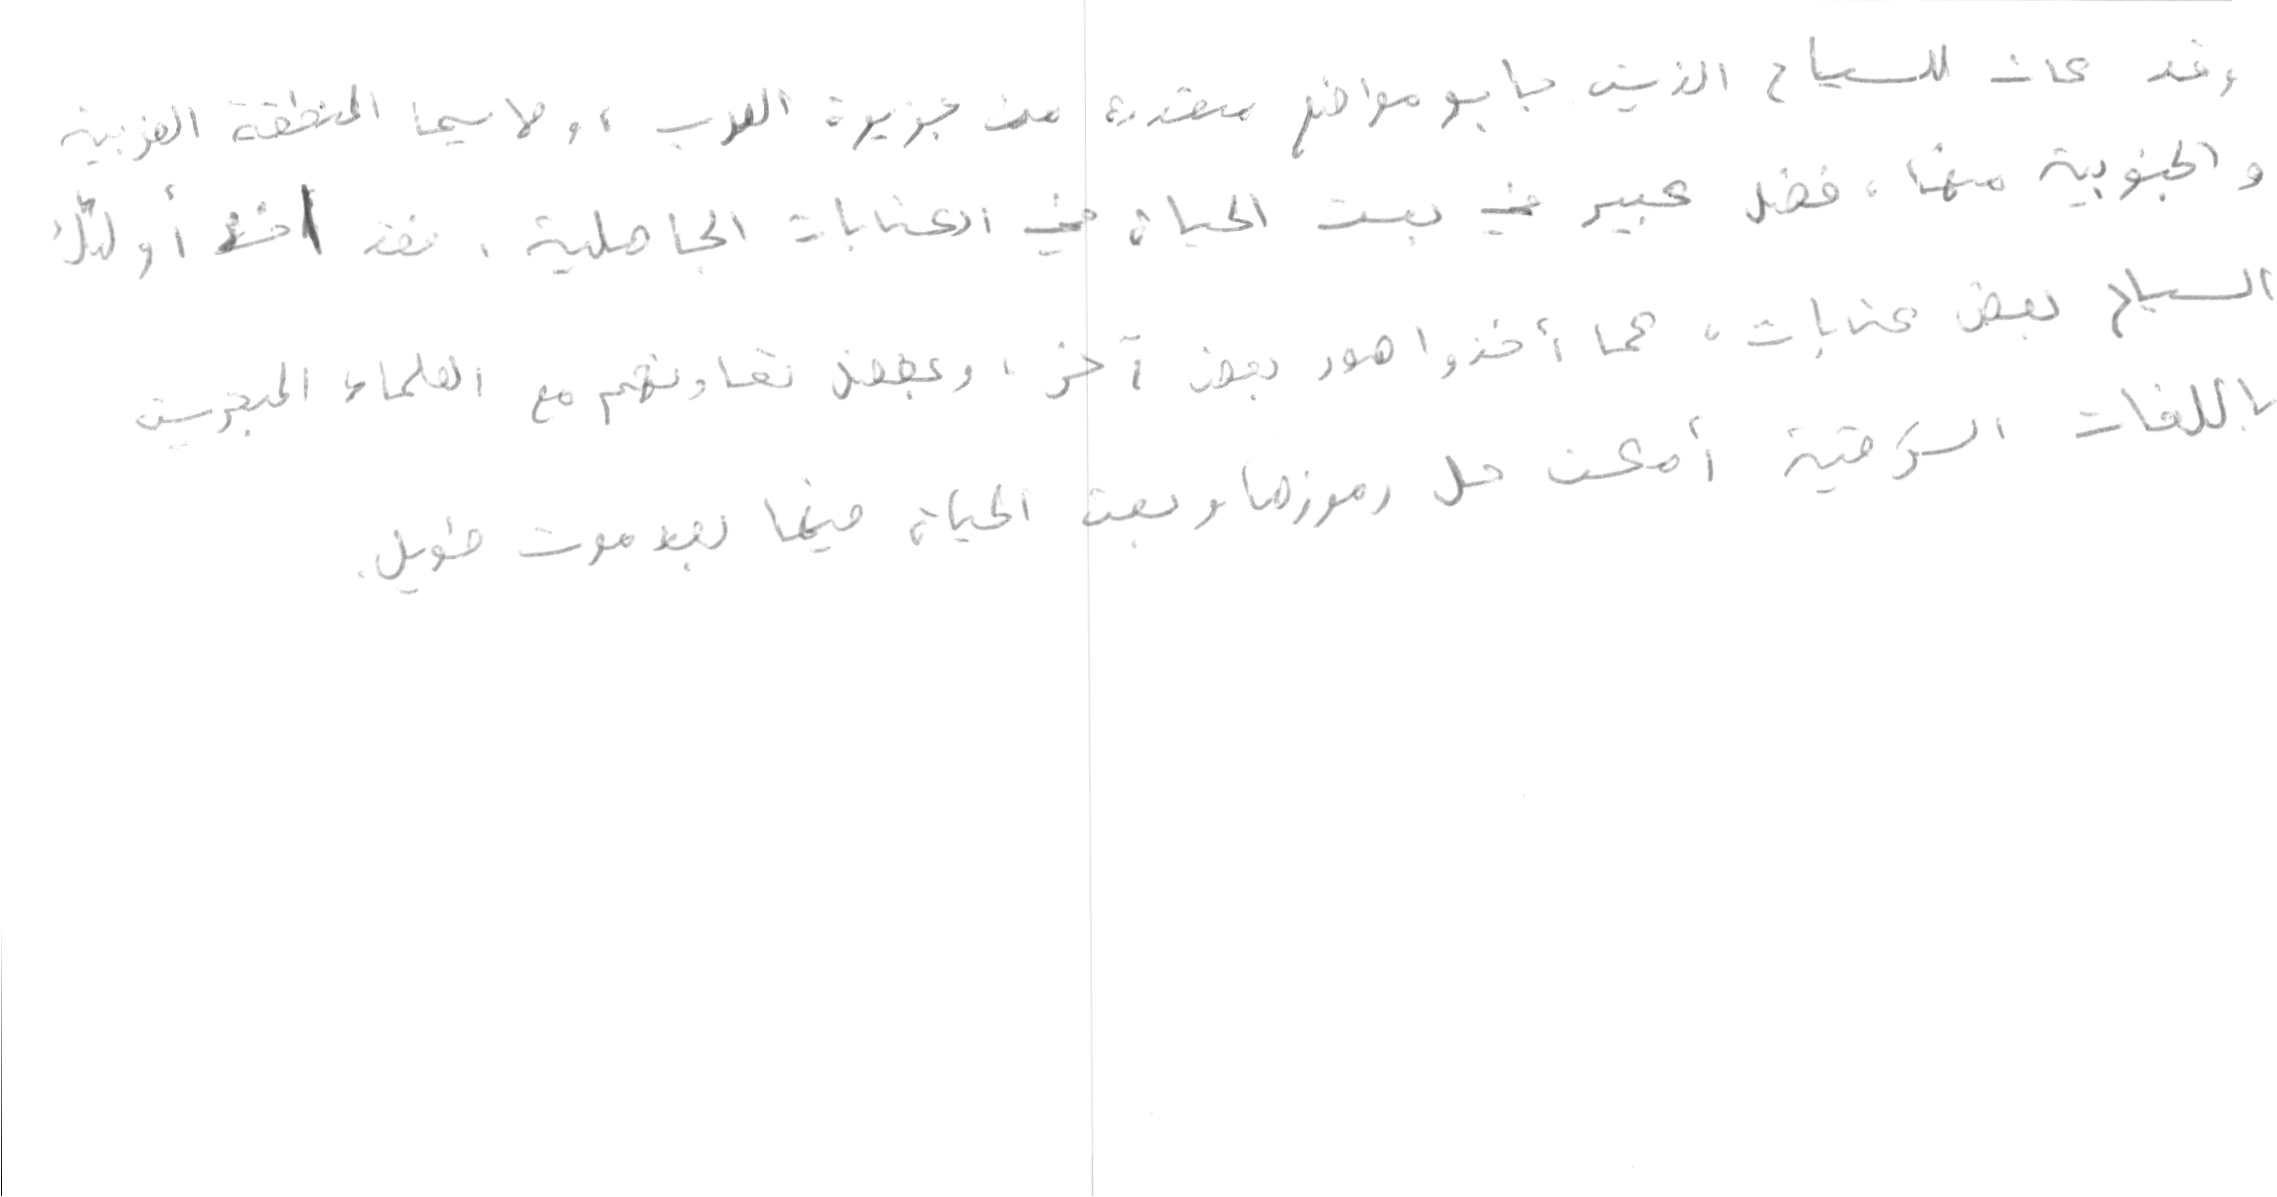 وقد كان للسياح الذين جابوا مواضع متعددة من جزيرة العرب ، ولاسيما المنطقة الغربية
والجنوبية منها ، فضل كبير في بعث الحياة في الكتابات الجاهلية ، فقد أخذ أولئك
السياح بعض كتابات ، كما أخذوا صور بعض آخر ، وبفضل تعاونهم مع العلماء المتبحرين
باللغات الشرقية أمكن حل رموزها وبعث الحياة فيها بعد موت طويل .